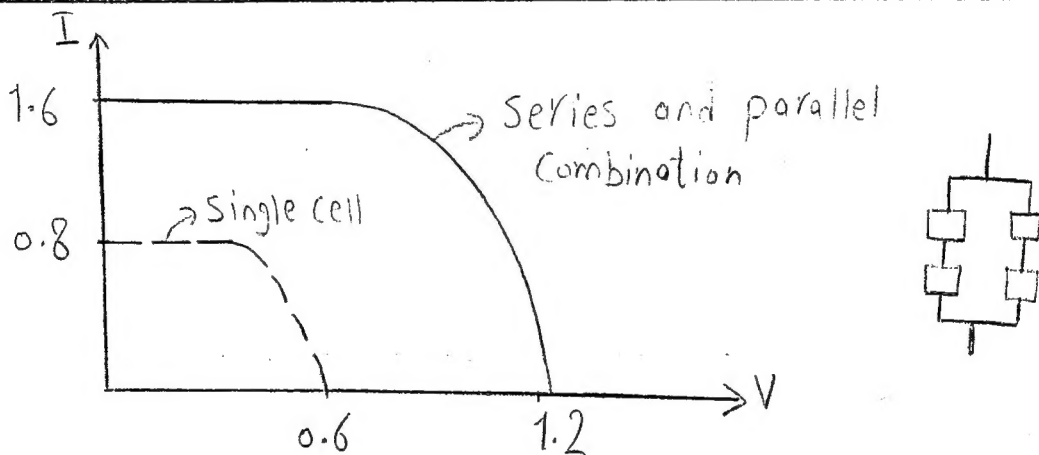 I
1.6
Series and parallel
Combination
Single cell
0.8
0.6
1.2
V